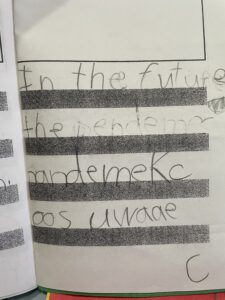 In the future
the pendemer
pandemekc
oos uwaae
C